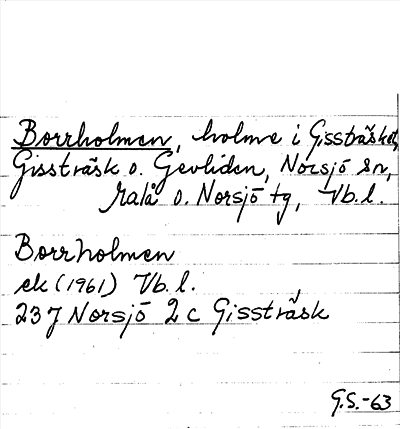 Borrholmen, holme i Gissträsket,
Gissträsk o. Gevliden, Norsjö sn,
Malå o. Norsjö tg, Vb. l.
Borrholmen
ek (1961) Vb. l.
23 J Norsjö 2 c Gissträsk
G.S.-63